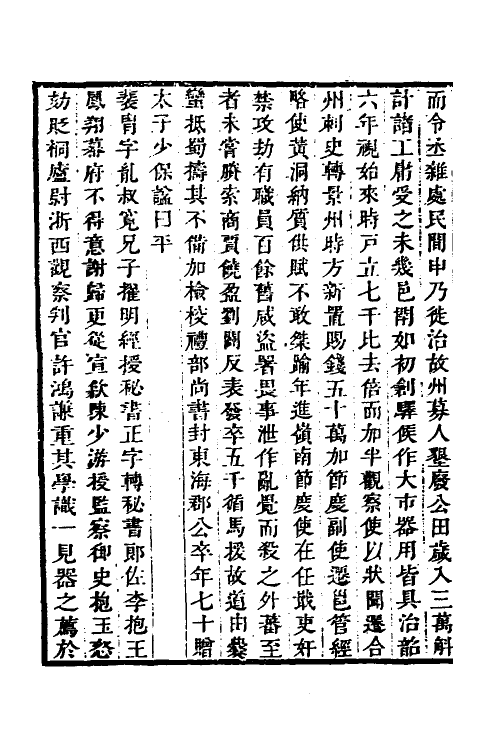 而令丞雜處民間申乃徙治故州募人墾廢公田歲入三萬斛
計諸工庸受之未幾邑閈如初創驛候作大市器用皆具治韶
六年視始來時戸立七千比去倍而加半觀察使以狀聞遷合
州刺史轉景州時方新置賜錢五十萬加節度副使遷邕管經
略使黃洞納質供賦不敢桀踰年進嶺南節度使在任戢吏奸
禁攻劫有職員百餘舊咸盜署畏事泄作亂覺而殺之外蕃至
者未嘗賸索商賈饒盈劉闢反表發卒五千循馬援故道由爨
蠻抵蜀擣其不備加檢校禮部尚書封東海郡公卒年七十贈
太子少保謚曰平
裴胄字胤叔寬兄子擢明經授秘書正字轉秘書郎佐李抱玉
鳳翔幕府不得意謝歸更從宣歙陳少游授監察御史抱玉怒
劾貶桐廬尉浙西觀察判官許鴻謙重其學識一見器之薦於